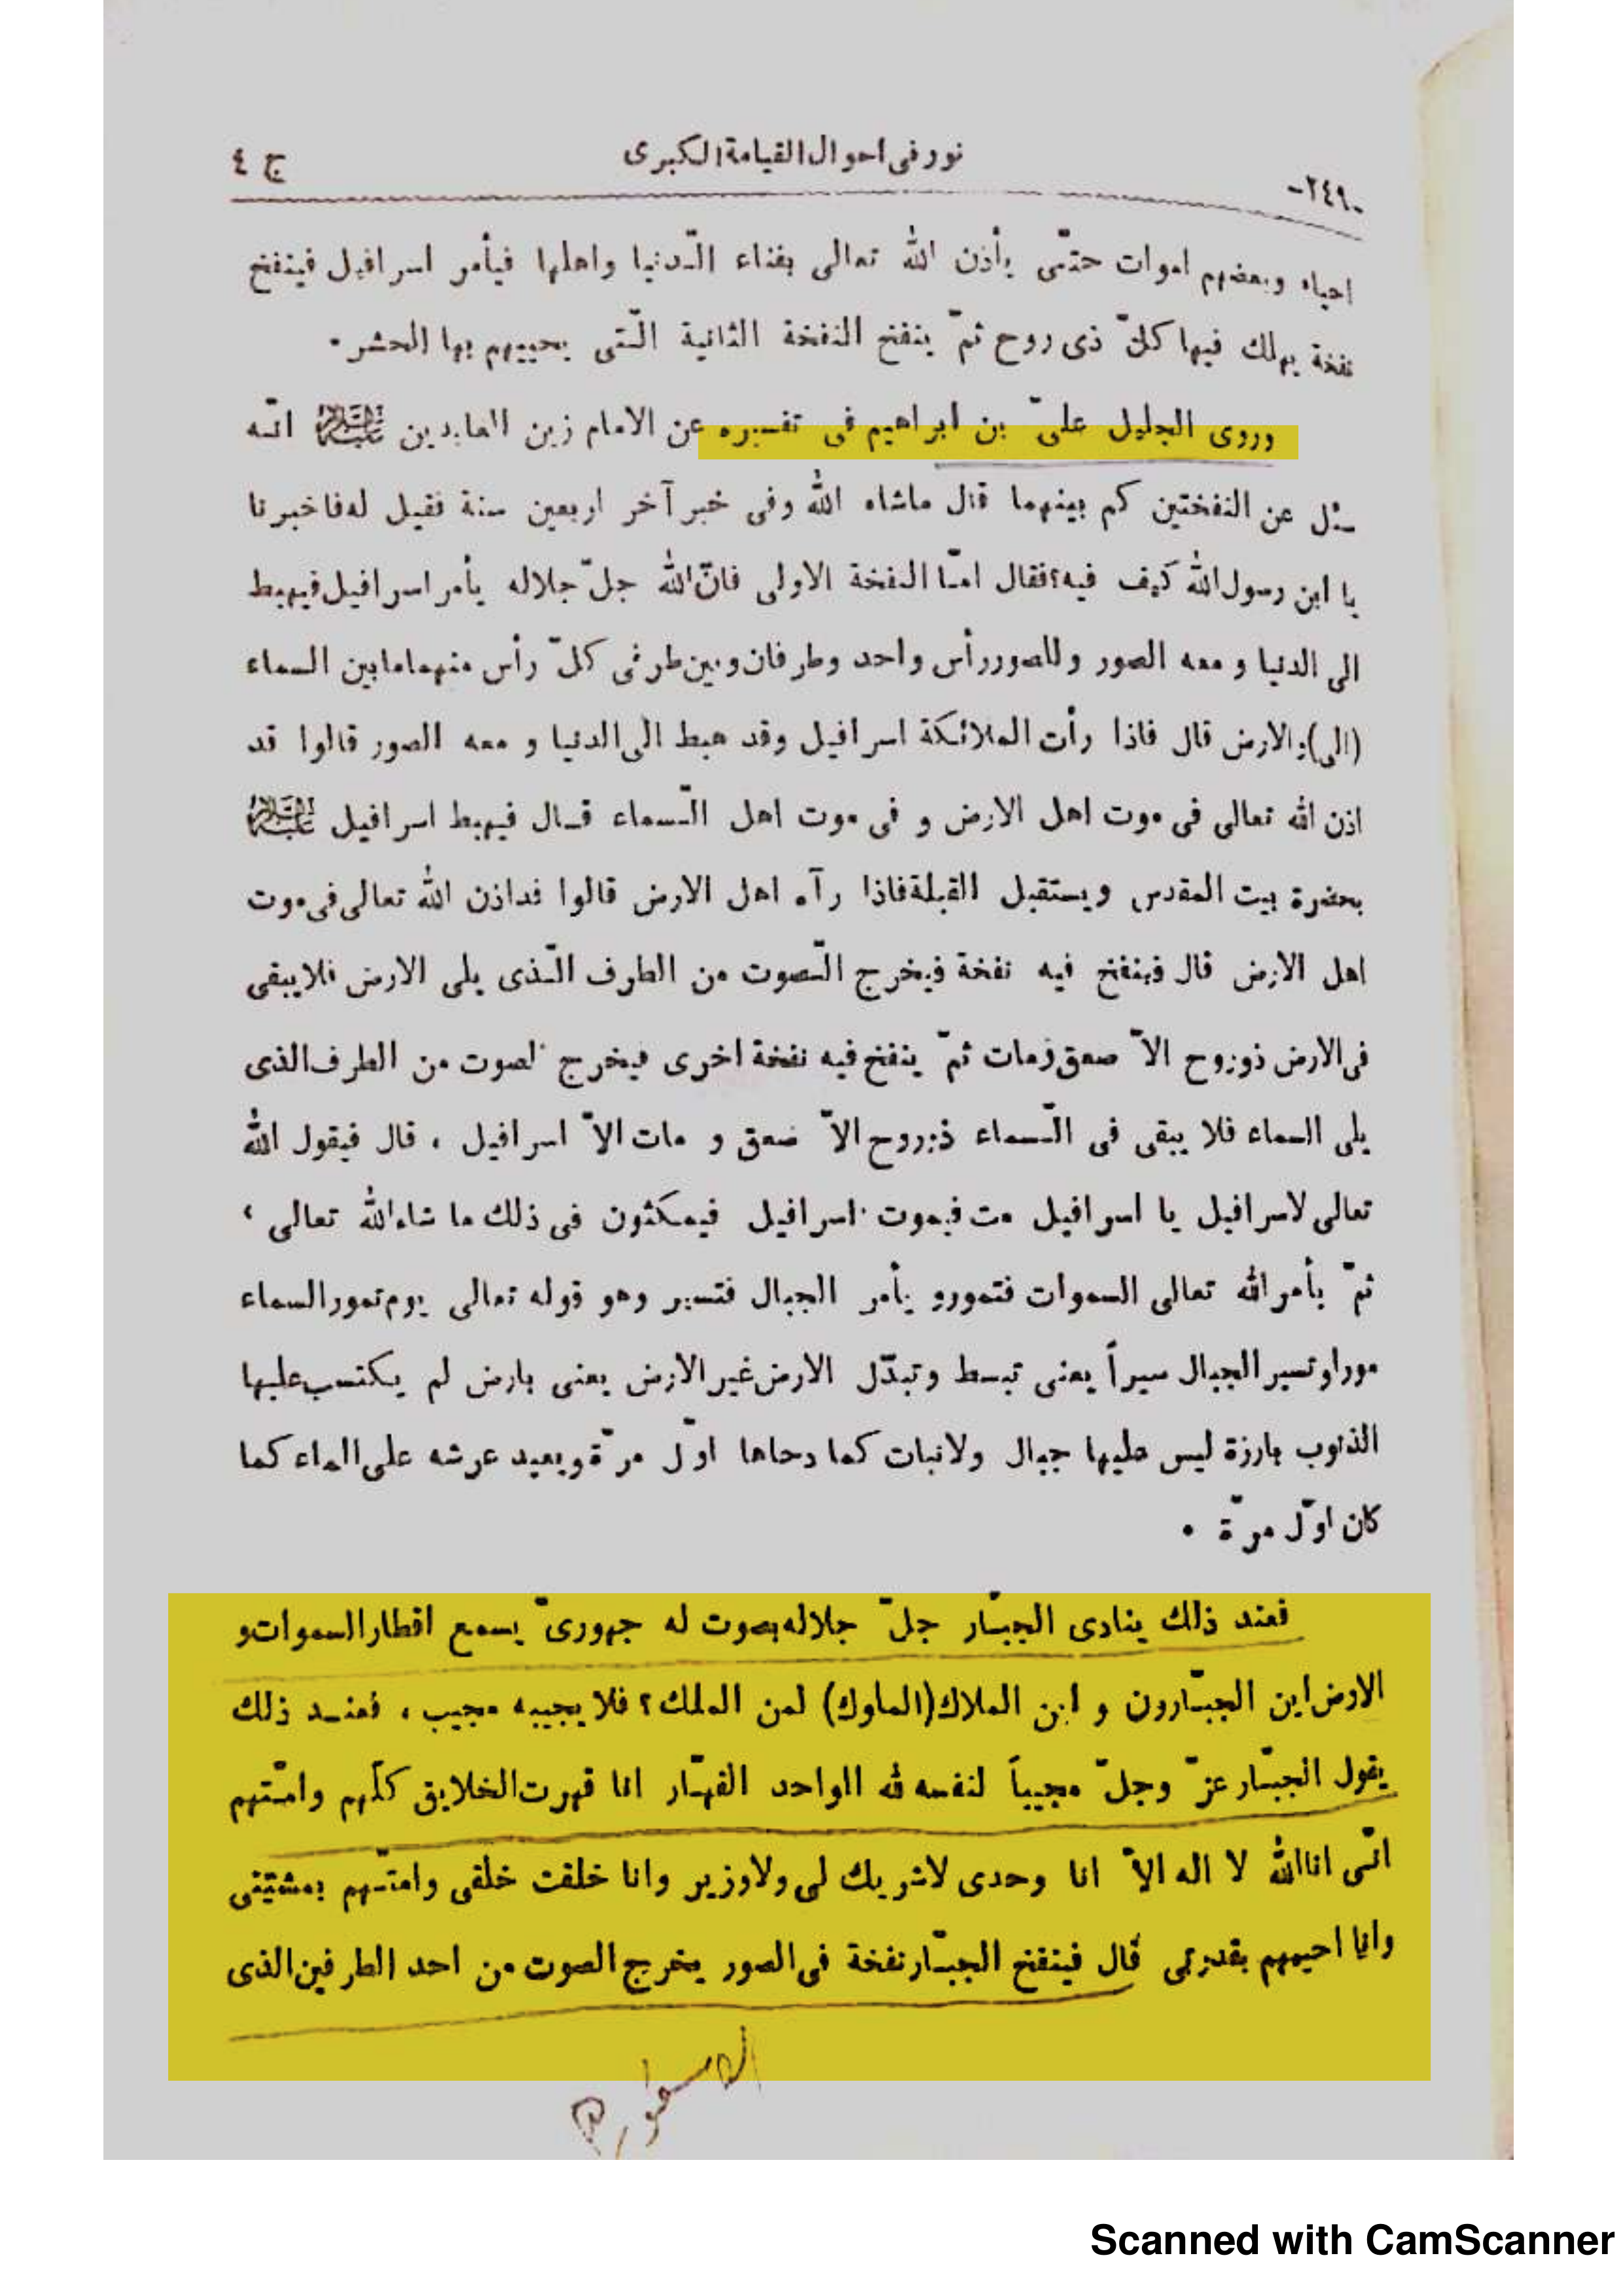 -٢٤٩- نور فى احوال القيامة الكبرى ج ٤
احياء وبعضهم اموات حتّى يأذن الله تعالى بفناء الدّنيا واهلها فيأمر اسرافيل فينفخ
نفخة يهلك فيها كلّ ذى روح ثمّ ينفخ النفخة الثانية الّتى يحييهم بها الحشر .
وروى الجليل علىّ بن ابراهيم فى تفسيره عن الامام زين العابدين عليه السلام انّه
سئل عن النفختين كم بينهما قال ماشاء الله وفى خبر آخر اربعين سنة فقيل له فاخبرنا
يا ابن رسول الله كيف فيه؟ فقال امّا النفخة الاولى فانّ الله جلّ جلاله يأمر اسرافيل فيهبط
الى الدنيا و معه الصور وللصور رأس واحد وطرفان وبين طرفى كلّ رأس منهما ما بين السماء
(الى) والارض قال فاذا رأت الملائكة اسرافيل وقد هبط الى الدنيا و معه الصور قالوا قد
اذن الله تعالى فى موت اهل الارض و فى موت اهل السّماء قال فيهبط اسرافيل عليه السلام
بحضرة بيت المقدس ويستقبل القبلة فاذا رآه اهل الارض قالوا قد اذن الله تعالى فى موت
اهل الارض قال فينفخ فيه نفخة فيخرج الصّوت من الطرف الّذى يلى الارض فلا يبقى
فى الارض ذوروح الاّ صعق ومات ثمّ ينفخ فيه نفخة اخرى فيخرج الصوت من الطرف الذى
يلى السماء فلا يبقى فى السّماء ذوروح الاّ صعق و مات الاّ اسرافيل ، قال فيقول الله
تعالى لاسرافيل يا اسرافيل مت فيموت اسرافيل فيمكثون فى ذلك ما شاء الله تعالى ،
ثمّ يأمر الله تعالى السموات فتمور و يأمر الجبال فتسير وهو قوله تعالى يوم تمور السماء
مورا وتسير الجبال سيراً يعنى تبسط وتبدّل الارض غير الارض يعنى بارض لم يكتسب عليها
الذنوب بارزة ليس عليها جبال ولانبات كما دحاها اوّل مرّة ويعيد عرشه على الماء كما
كان اوّل مرّة .
فعند ذلك ينادى الجبّار جلّ جلاله بصوت له جهورىّ يسمع اقطار السموات و
الارض اين الجبّارون و اين الملاك (الملوك) لمن الملك ؟ فلا يجيبه مجيب ، فعند ذلك
يقول الجبّار عزّ وجلّ مجيباً لنفسه لله الواحد القهّار انا قهرت الخلايق كلّهم وامتّهم
انّى انا الله لا اله الاّ انا وحدى لاشريك لى ولاوزير وانا خلقت خلقى وامتّهم بمشيّتى
وانا احييهم بقدرتى قال فينفخ الجبّار نفخة فى الصور يخرج الصوت من احد الطرفين الذى
Scanned with CamScanner